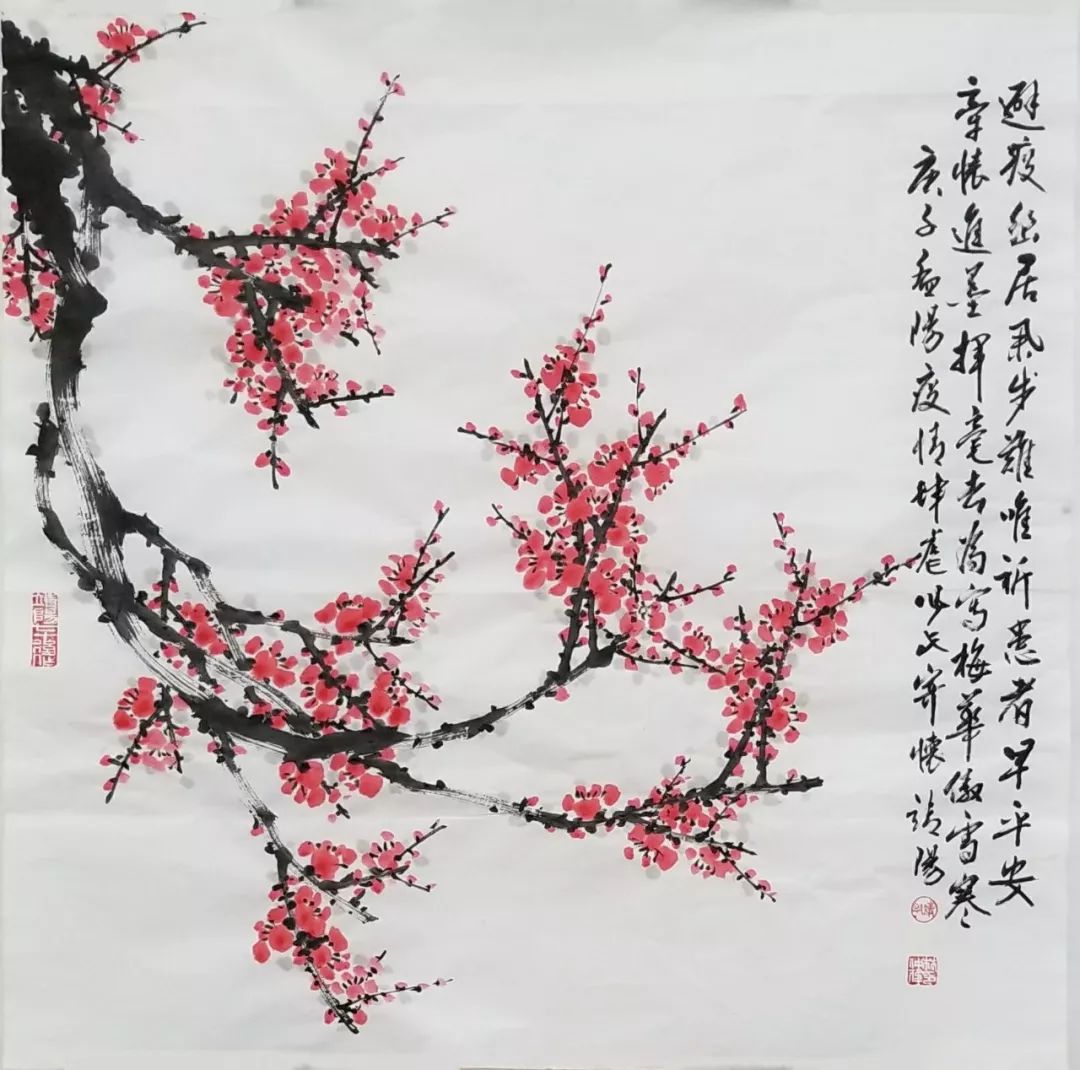 避疫居步難唯祈患者早平安
牽懷進墨揮毫去為寫梅華傲雪寒
庚子陽疫情肆虐以寄懷靖陽